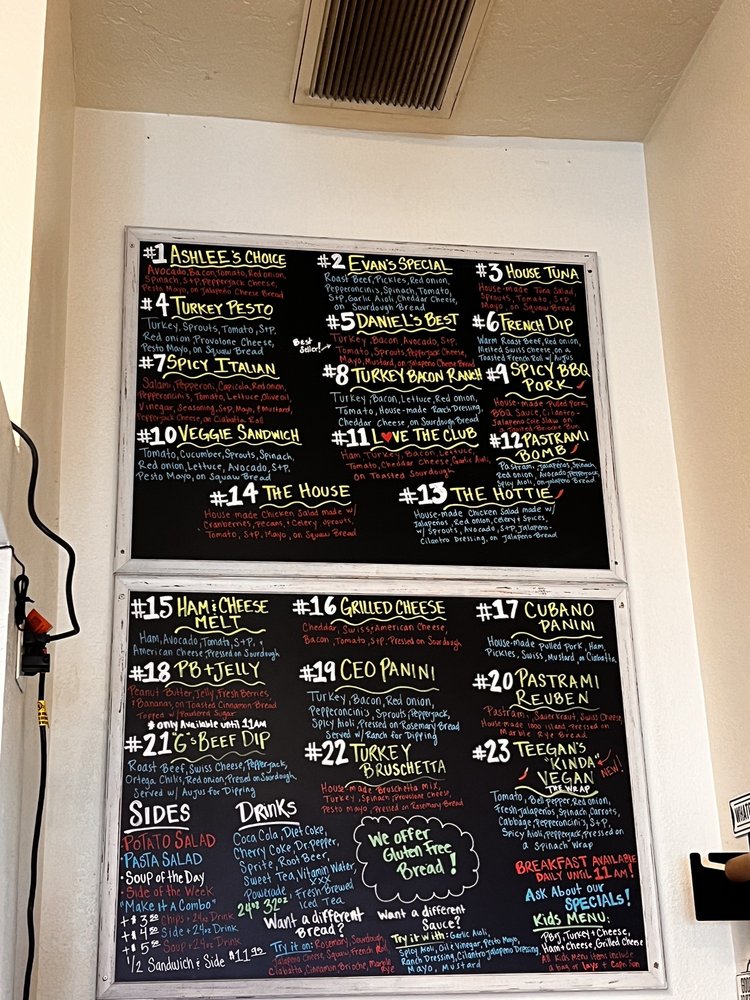 #1 ASHLEE'S CHOICE
Avocado, Bacon, Tomato, Red onion,
Spinach, S+P, Pepperjack Cheese,
Pesto Mayo, on Jalapeño Cheese Bread
#2 EVAN'S SPECIAL
Roast Beef, Pickles, Red onion,
Pepperoncini's, Spinach, Tomato,
S+P, Garlic Aioli, Cheddar Cheese,
on Sourdough Bread
#3 HOUSE TUNA
House-made Tuna Salad,
Sprouts, Tomato, S+P,
Mayo, on Squaw Bread
#4 TURKEY PESTO
Turkey, Sprouts, Tomato, S+P,
Red onion Provolone Cheese,
Pesto Mayo, on Squaw Bread
Best Seller!
#5 DANIEL'S BEST
Turkey, Bacon, Avocado, S+P,
Tomato, Sprouts, Pepperjack Cheese,
Mayo, Mustard, on Jalapeño Cheese Bread
#6 FRENCH DIP
Warm Roast Beef, Red onion,
Melted Swiss Cheese, on a
Toasted French Roll w/ Aujus
#7 SPICY ITALIAN
Salami, Pepperoni, Capicola, Red onion,
Pepperoncini's, Tomato, Lettuce, Olive oil,
Vinegar, Seasoning, S+P, Mayo, & Mustard,
Pepperjack Cheese, on Ciabatta Roll
#8 TURKEY BACON RANCH
Turkey, Bacon, Lettuce, Red onion,
Tomato, House-made Ranch Dressing,
Cheddar Cheese, on Sourdough Bread
#9 SPICY BBQ
PORK
House-made Pulled Pork,
BBQ Sauce, Cilantro-
Jalapeño Cole Slaw on a
Toasted Brioche Bun
#10 VEGGIE SANDWICH
Tomato, Cucumber, Sprouts, Spinach,
Red onion, Lettuce, Avocado, S+P,
Pesto Mayo, on Squaw Bread
#11 L♥VE THE CLUB
Ham, Turkey, Bacon, Lettuce,
Tomato, Cheddar Cheese, Garlic Aioli,
on Toasted Sourdough
#12 PASTRAMI
BOMB
Pastrami, Jalapeños, Spinach,
Red onion, Avocado, Pepperjack,
Spicy Aioli, on Jalapeño Bread
#14 THE HOUSE
House-made Chicken Salad made w/
Cranberries, Pecans, + Celery, Sprouts,
Tomato, S+P, Mayo, on Squaw Bread
#13 THE HOTTIE
House-made Chicken Salad w/
Jalapeños, Red onion, Celery + Spices,
w/ Sprouts, Avocado, S+P, Jalapeño-
Cilantro Dressing, on Jalapeño Bread
#15 HAM & CHEESE
MELT
Ham, Avocado, Tomato, S+P, +
American Cheese, Pressed on Sourdough
#16 GRILLED CHEESE
Cheddar, Swiss + American Cheese,
Bacon, Tomato, S+P, Pressed on Sourdough
#17 CUBANO
PANINI
House-made Pulled Pork, Ham,
Pickles, Swiss, Mustard, on Ciabatta
#18 PB+JELLY
Peanut Butter, Jelly, Fresh Berries,
+ Bananas, on Toasted Cinnamon Bread
Topped w/ Powdered Sugar
* only Available until 11am
#19 CEO PANINI
Turkey, Bacon, Red onion,
Pepperoncini's, Sprouts, Pepperjack,
Spicy Aioli, Pressed on Rosemary Bread
Served w/ Ranch for Dipping
#20 PASTRAMI
REUBEN
Pastrami, Sauerkraut, Swiss Cheese,
House made 1000 island, Pressed on
Marble Rye Bread
#21 "G"'s BEEF DIP
Roast Beef, Swiss Cheese, Pepperjack,
Ortega Chilis, Red onion, Pressed on Sourdough,
Served w/ Aujus for Dipping
#22 TURKEY
BRUSCHETTA
House-made Bruschetta Mix,
Turkey, Spinach, Provolone Cheese,
Pesto Mayo, Pressed on Rosemary Bread
#23 TEEGAN'S
"KINDA"
VEGAN
THE WRAP
NEW!
Tomato, Bell pepper, Red onion,
Fresh Jalapeños, Spinach, Carrots,
Cabbage, Pepperoncini's, S+P,
Spicy Aioli, Pepperjack, Pressed on
a Spinach Wrap
SIDES
•POTATO SALAD
•PASTA SALAD
•Soup of the Day
•Side of the Week
"Make It a Combo"
+ $3.50 Chips + 24oz Drink
+ $4.50 Side + 24oz Drink
+ $5.50 Soup + 24oz Drink
1/2 Sandwich & Side $11.95
DRINKS
Coca Cola, Diet Coke,
Cherry Coke, Dr. Pepper,
Sprite, Root Beer,
Sweet Tea, Vitamin Water
XXX
Powerade, Fresh Brewed
Iced Tea
24oz 32oz
We offer
Gluten Free
Bread!
Want a different
Bread?
Try it on: Rosemary, Sourdough,
Jalapeño Cheese, Squaw, French Roll,
Ciabatta, Cinnamon, Brioche, Marble
Rye
Want a different
Sauce?
Try it with: Garlic Aioli,
Spicy Aioli, Oil & Vinegar, Pesto Mayo,
Ranch Dressing, Cilantro Jalapeño Dressing,
Mayo, Mustard
BREAKFAST AVAILABLE
DAILY UNTIL 11AM!
Ask About our
SPECIALS!
Kids MENU:
PB+J, Turkey + Cheese,
Ham + Cheese, Grilled Cheese
All Kids Menu Items include
a bag of Lays + Capri Sun